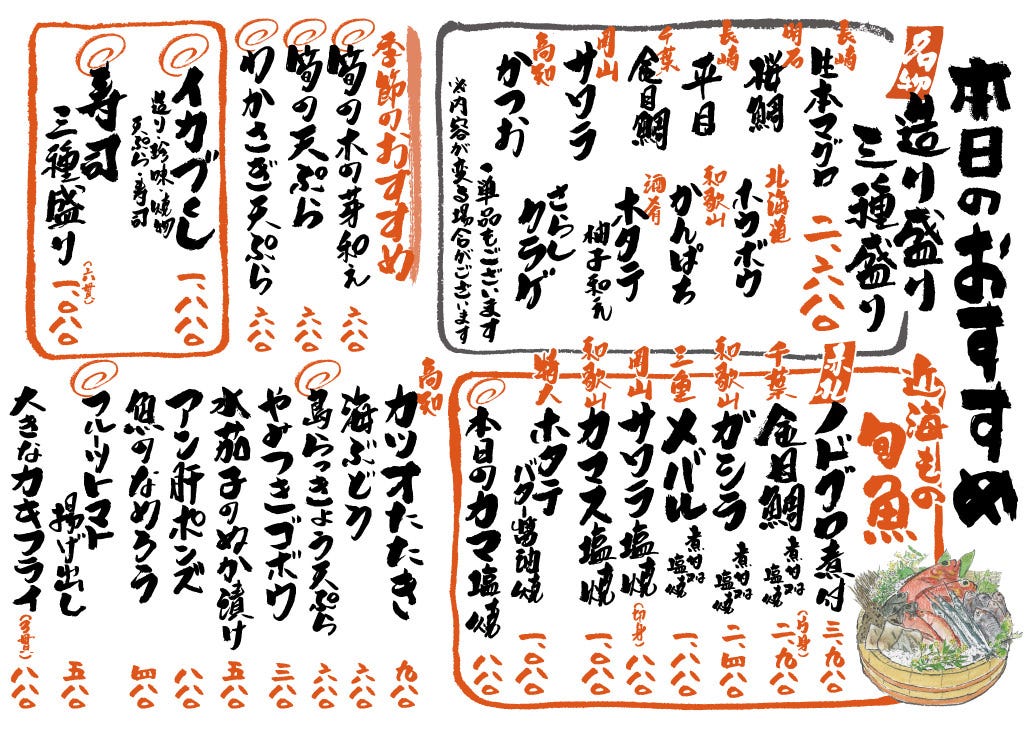 本日のおすすめ
名物
造り盛り
三種盛り
二、六八〇
長崎
生本マグロ
明石
桜鯛
長崎
平目
千葉
金目鯛
岡山
サワラ
高知
かつお
北海道
ホウボウ
和歌山
かんぱち
酒肴
ホタテ
柚子和え
さらし
クラゲ
・単品もございます
※内容が変る場合がございます
季節のおすすめ
筍の木の芽和え
六八〇
筍の天ぷら
六八〇
わかさぎ天ぷら
六八〇
イカづくし
造り・珍味・焼物
天ぷら・寿司
一、八八〇
寿司
三種盛り
(六貫)
一、〇八〇
近海もの
旬魚
ノドグロ煮付
三、九八〇
千葉
金目鯛
煮付又は
塩焼
(片身)
二、九八〇
和歌山
ガシラ
煮付又は
塩焼
二、四八〇
三重
メバル
煮付又は
塩焼
一、八八〇
岡山
サワラ塩焼
(切身)
八八〇
和歌山
カマス塩焼
一、〇八〇
ホタテ
バター醤油焼
一、〇八〇
本日のカマ塩焼
八八〇
高知
カツオたたき
九八〇
海ぶどう
六八〇
島らっきょう天ぷら
六八〇
やみつきゴボウ
三八〇
水茄子のぬか漬け
五八〇
アン肝ポンズ
八八〇
魚のなめろう
四八〇
フルーツトマト
揚げ出し
五八〇
大きなカキフライ
八八〇